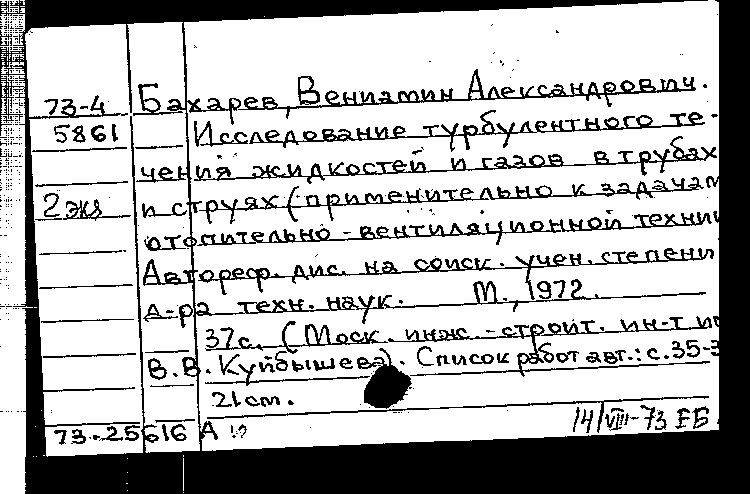 73-4 Бахарев, Вениамин Александрович.
5861 Исследование турбулентного те-
чения жидкостей и газов в трубах
2 экз и струях (применительно к задачам
отопительно-вентиляционной техни
Автореф. дис. на соиск. учен. степени
д-ра техн. наук. М., 1972.
37с. (Моск. инж.-строит. ин-т им
В.В. Куйбышева). Список работ авт.: с.35-3
21см.
73-25616 А 14/VIII-73 ЕБ